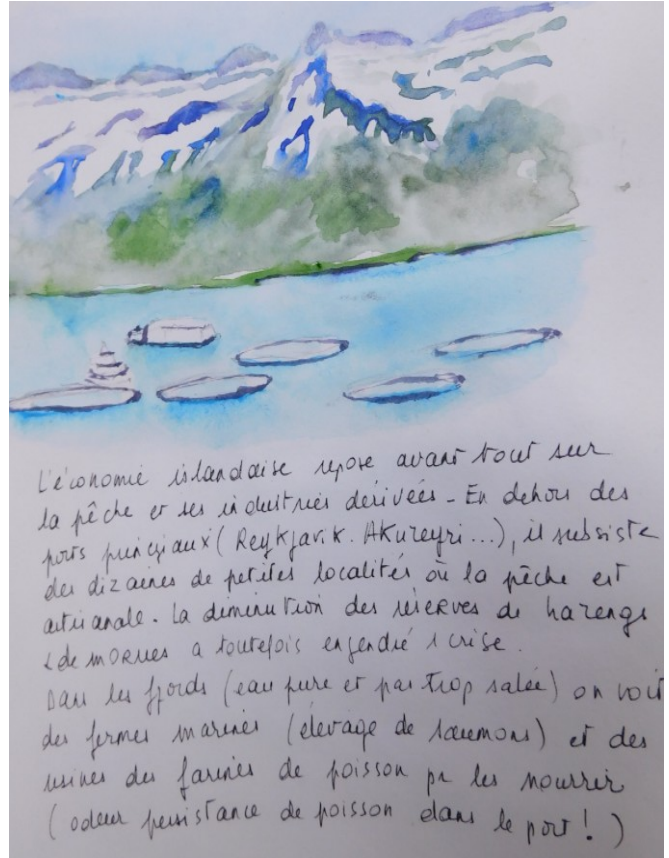 L'économie islandaise repose avant tout sur
la pêche et ses industries dérivées - En dehors des
ports principaux (Reykjavik. Akureyri...), il subsiste
des dizaines de petites localités où la pêche est
artisanale. La diminution des réserves de harengs
& de morues a toutefois engendré 1 crise.
Dans les fjords (eau pure et pas trop salée) on voit
des fermes marines (élevage de saumons) et des
usines des farines de poisson pr les nourrir
(odeur persistance de poisson dans le port !)